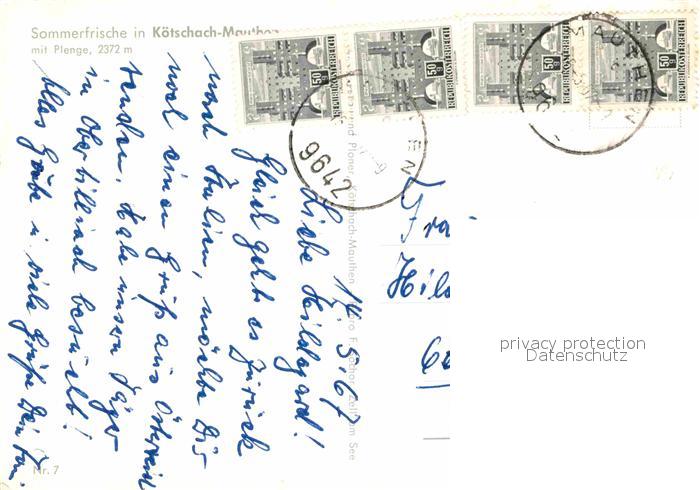 Sommerfrische in Kötschach-Mauthen
mit Plenge, 2372 m
50 g
REPUBLIK ÖSTERREICH
50 g
REPUBLIK ÖSTERREICH
50 g
REPUBLIK ÖSTERREICH
50 g
REPUBLIK ÖSTERREICH
9642
MAUTHEN
14.5.67
Liebe Hildegard!
Gleich geht es zurück
nach Italien, möchte Dir
noch einen Gruß aus Österreich
senden. Habe unsern Jäger
in Obertilliach besucht!
Alles Gute u. viele Grüße Dein
Ploner, Kötschach-Mauthen
Zell am See
Hil
privacy protection
Datenschutz
Nr. 7